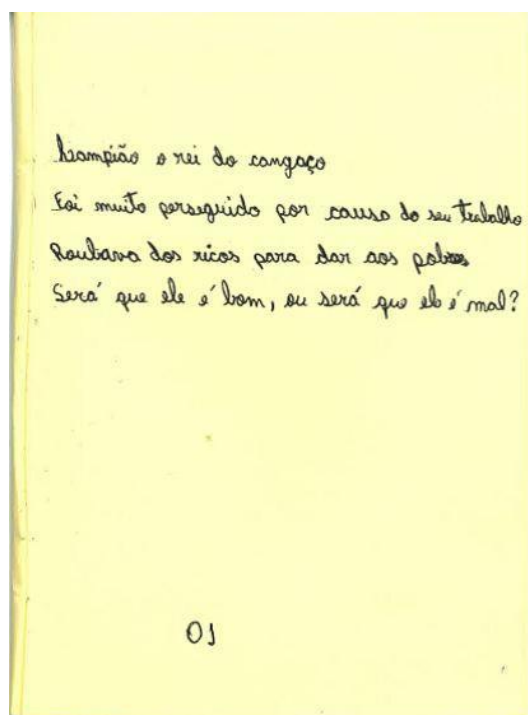 Lampião o rei do cangaço
Foi muito perseguido por causa do seu trabalho
Roubava dos ricos para dar aos pobres
Será que ele é bom, ou será que ele é mal?
01